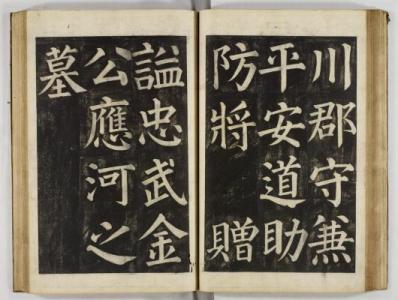 川郡守兼
平安道助
防將 贈
謚忠武金
公應河之
墓